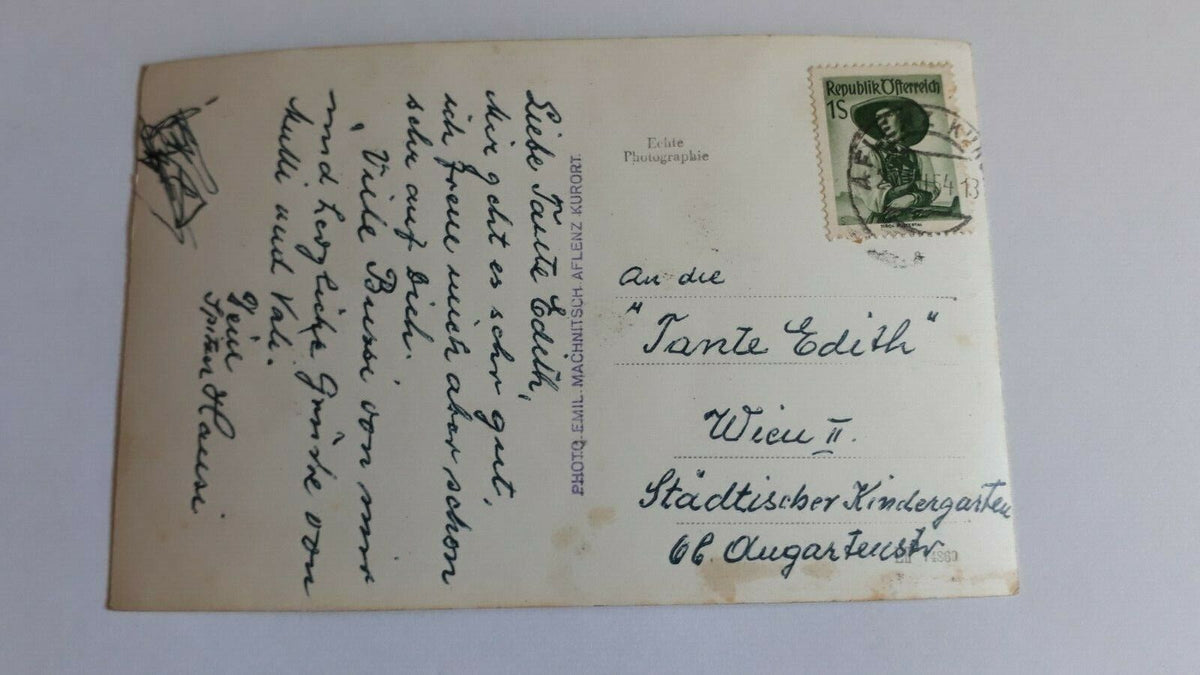 Liebe Tante Edith,
Mir geht es sehr gut,
ich freue mich aber schon
sehr auf Dich.
Viele Bussi von mir
und herzliche Grüße von
Mutti und Vati.
Dein
Hansi
PHOTO EMIL MACHNITSCH AFLENZ KURORT
Echte
Photographie
Republik Österreich
1S
An die
"Tante Edith"
Wien II.
Städtischer Kindergarten
Augartenstr